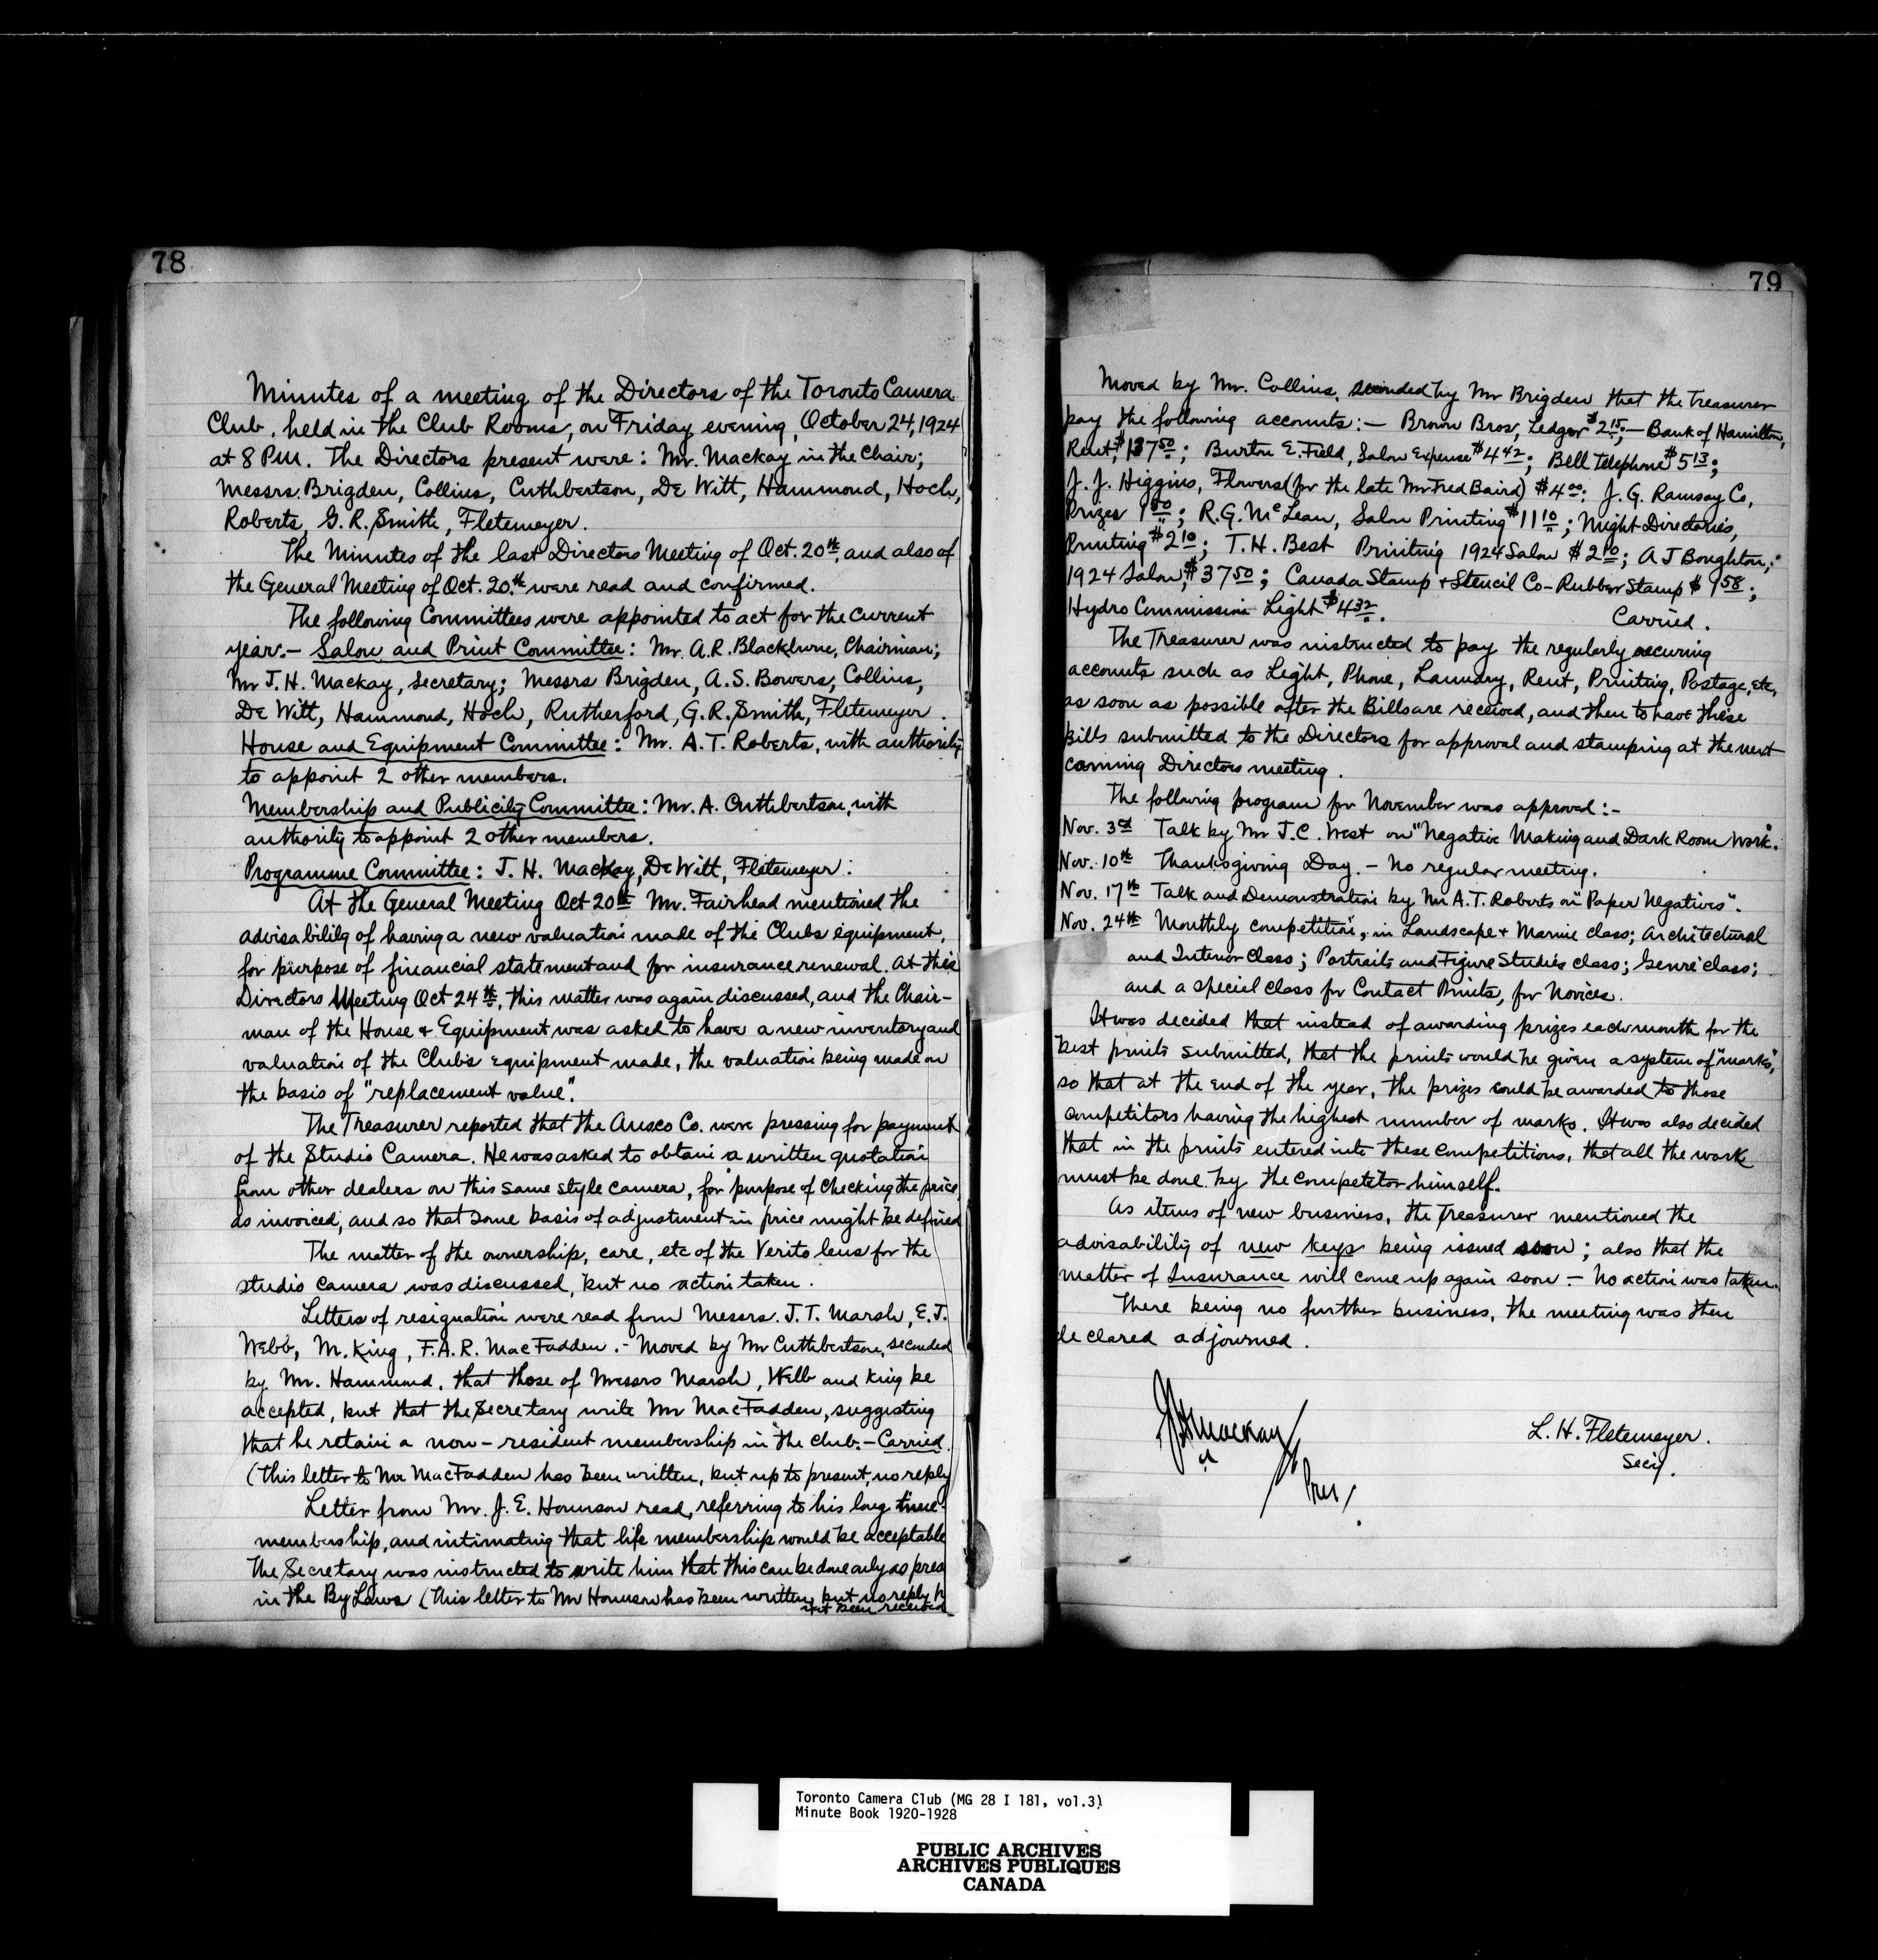 78
Minutes of a meeting of the Directors of the Toronto Camera
Club, held in the Club Rooms, on Friday evening, October 24, 1924
at 8 P.M. The Directors present were: Mr. Mackay in the Chair;
Messrs. Brigden, Collins, Cuthbertson, De Witt, Hammond, Hoch,
Roberts, G. R. Smith, Fletemeyer.
The Minutes of the last Directors Meeting of Oct. 20th, and also of
the General Meeting of Oct. 20th were read and confirmed.
The following Committees were appointed to act for the current
year.– Salon and Print Committee: Mr. A. R. Blackburne, Chairman;
Mr J. H. Mackay, Secretary; Messrs Brigden, A. S. Bowers, Collins,
De Witt, Hammond, Hoch, Rutherford, G. R. Smith, Fletemeyer.
House and Equipment Committee: Mr. A. T. Roberts, with authority
to appoint 2 other members.
Membership and Publicity Committee: Mr. A. Cuthbertson, with
authority to appoint 2 other members.
Programme Committee: J. H. Mackay, De Witt, Fletemeyer.
At the General Meeting Oct 20th Mr. Fairhead mentioned the
advisability of having a new valuation made of the Clubs equipment,
for purpose of financial statement and for insurance renewal. At this
Directors Meeting Oct 24th, this matter was again discussed, and the Chair-
man of the House & Equipment was asked to have a new inventory and
valuation of the Club's equipment made, the valuation being made on
the basis of "replacement value".
The Treasurer reported that the Ansco Co. were pressing for payment
of the Studio Camera. He was asked to obtain a written quotation
from other dealers on this same style camera, for purpose of checking the price
as invoiced, and so that some basis of adjustment in price might be defined
The matter of the ownership, care, etc of the Verito lens for the
studio camera was discussed, but no action taken.
Letters of resignation were read from Messrs. J. T. Marsh, E. J.
Webb, M. King, F. A. R. MacFadden.– Moved by Mr Cuthbertson, seconded
by Mr. Hammond, that those of Messrs Marsh, Webb and King be
accepted, but that the Secretary write Mr MacFadden, suggesting
that he retain a non-resident membership in the club.– Carried.
(This letter to Mr MacFadden has been written, but up to present, no reply
Letter from Mr. J. E. Hounson read, referring to his long time
membership, and intimating that life membership would be acceptable
The Secretary was instructed to write him that this can be done only as pres
in the By Laws (This letter to Mr Hounson has been written, but no reply h
yet been received
79
Moved by Mr. Collins, seconded by Mr Brigden that the Treasurer
pay the following accounts:– Brown Bros, Ledger $2 15;– Bank of Hamilton,
Rent, $137 50; Burton E. Field, Salon Expense $4 42; Bell Telephone $5 13;
J. J. Higgins, Flowers (for the late Mr Fred Baird) $4 00; J. G. Ramsay Co,
Prizes 1 50; R. G. McLean, Salon Printing $11 10; Might Directories,
Printing $2 10; T. H. Best Printing 1924 Salon $2 10; A J Boughton,
1924 Salon, $37 50; Canada Stamp & Stencil Co– Rubber Stamp $1 58;
Hydro Commission Light $4 32.
Carried.
The Treasurer was instructed to pay the regularly occuring
accounts such as Light, Phone, Laundry, Rent, Printing, Postage, etc,
as soon as possible after the Bills are received, and then to have these
bills submitted to the Directors for approval and stamping at the next
coming Directors meeting.
The following program for November was approved:–
Nov. 3rd Talk by Mr J. C. West on "Negative Making and Dark Room Work".
Nov. 10th Thanksgiving Day.– No regular meeting.
Nov. 17th Talk and Demonstration by Mr A. T. Roberts on "Paper Negatives".
Nov. 24th Monthly competition, in Landscape & Marine class; Architectural
and Interior Class; Portraits and Figure Studies class; Genre class;
and a special class for Contact Prints, for Novices.
It was decided that instead of awarding prizes each month for the
best prints submitted, that the prints would be given a system of "marks",
so that at the end of the year, the prizes could be awarded to those
competitors having the highest number of marks. It was also decided
that in the prints entered into these competitions, that all the work
must be done by the competitor himself.
As items of new business, the Treasurer mentioned the
advisability of new keys being issued soon; also that the
matter of Insurance will come up again soon – No action was taken.
There being no further business, the meeting was then
declared adjourned.
J H Mackay
Pres.
L. H. Fletemeyer.
Secy.
Toronto Camera Club (MG 28 I 181, vol.3)
Minute Book 1920-1928
PUBLIC ARCHIVES
ARCHIVES PUBLIQUES
CANADA